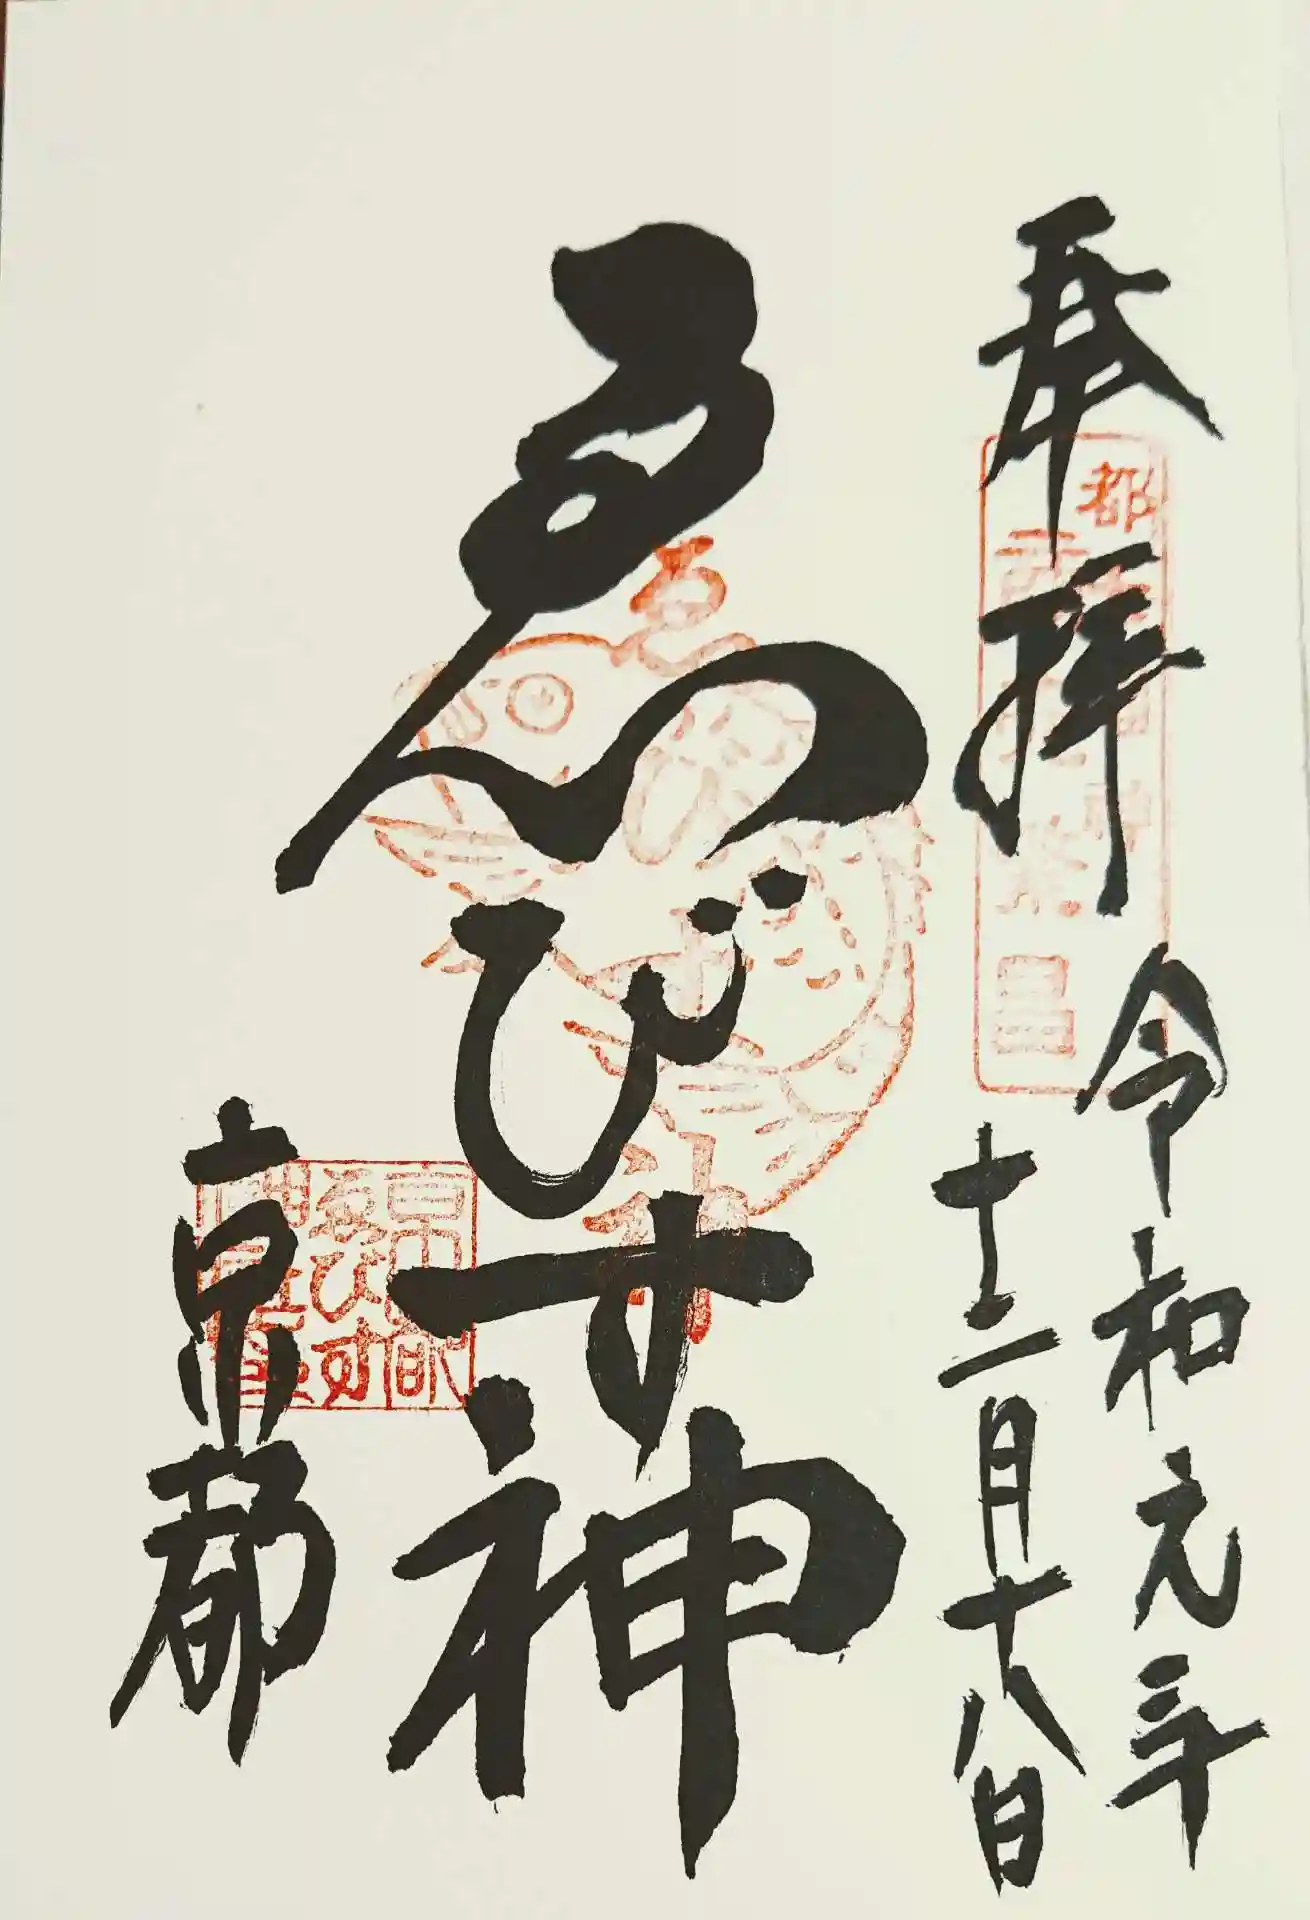 奉拝
令和元年
十二月十八日
ゑびす神
京都